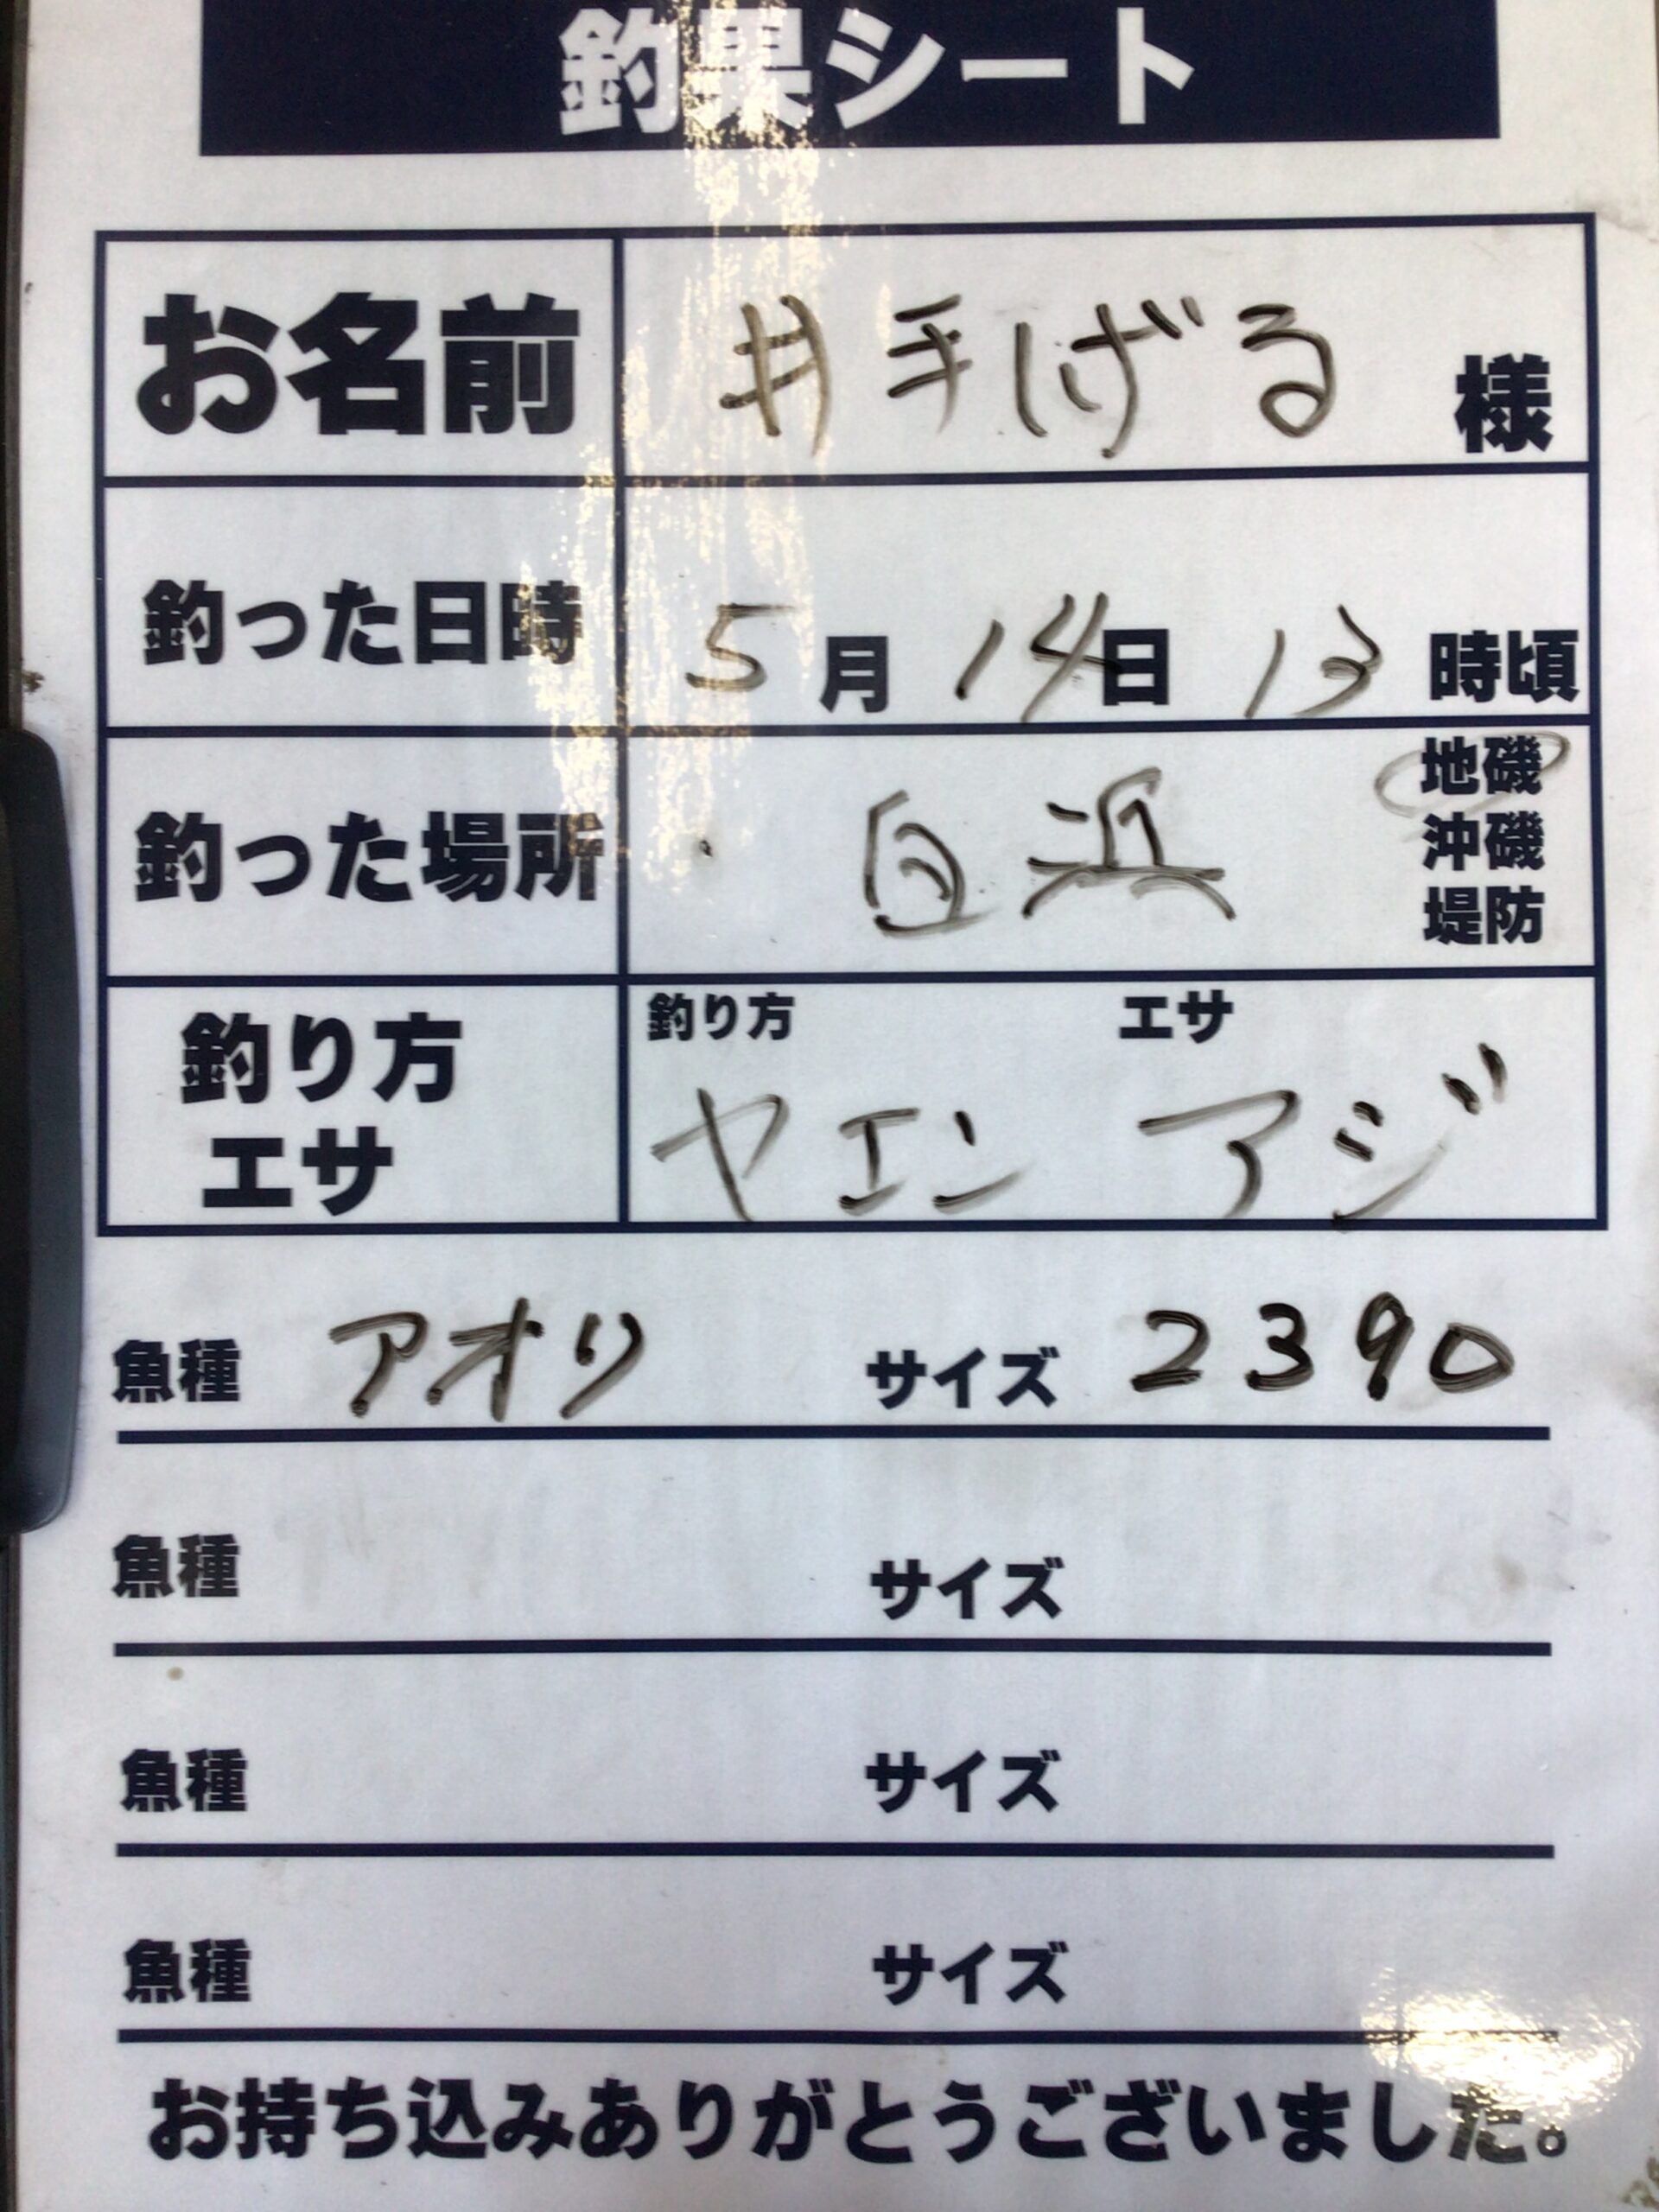 釣果シート
お名前 井手げる 様
釣った日時 5月 14日 13時頃
釣った場所 白浜 地磯
沖磯
堤防
釣り方 エサ
釣り方 ヤエン アジ
エサ
魚種 アオリ サイズ 2390
魚種 サイズ
魚種 サイズ
魚種 サイズ
お持ち込みありがとうございました。